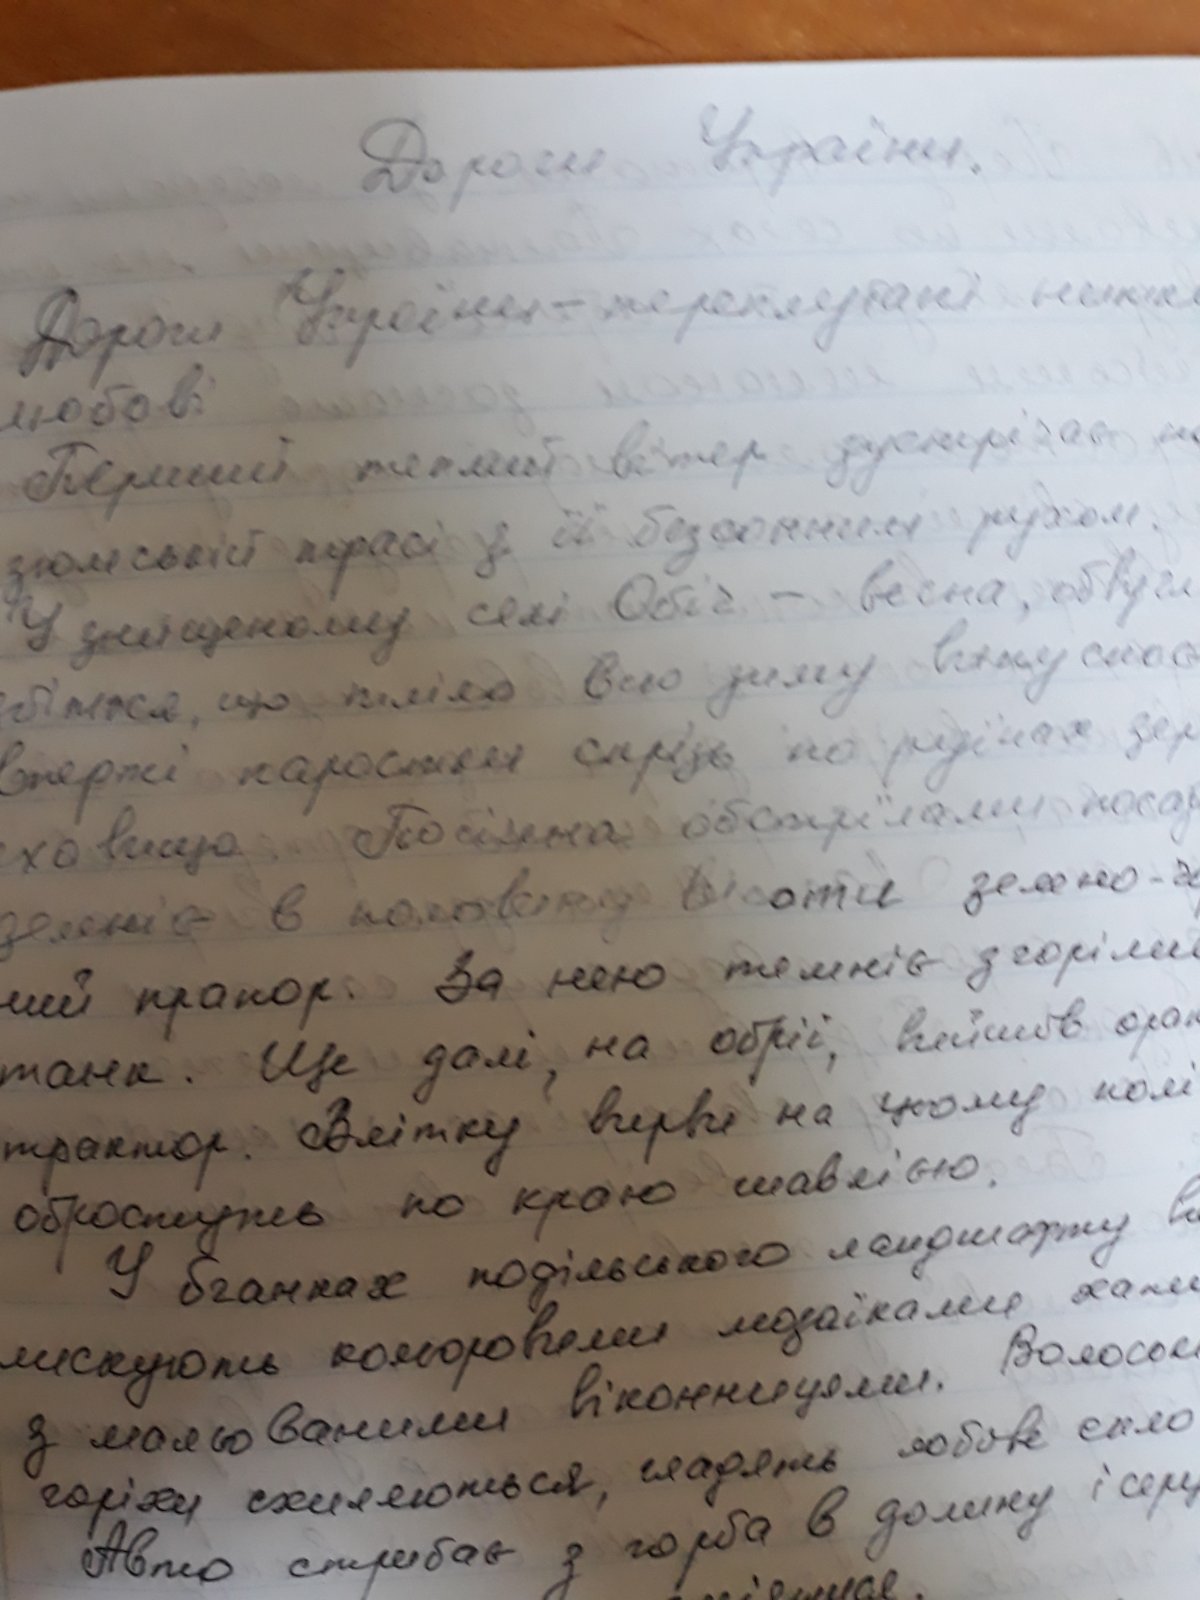 Дороги України.
Дороги України – переплутані нитки
любові
Перший теплий вітер зустрічає на
зюмській трасі з її безсонним рухом.
У знищеному селі Обіч – весна, обвугл
збіжжя, що тліло всю зиму випускає
вперті паростки крізь по руїнах зер
сховища. Посічена обстрілами посад
зеленіє в половину висоти зелено-чо
ний прапор. За нею темніє згорілий
танк. Ще далі, на обрії, вийшов оран
трактор. Влітку вирви на цьому полі
обростуть по краю шавлією.
У бганках подільського ландшафту ви
лискують кольоровими мозаїками хати
з мальованими віконницями. Волоські
горіхи схиляються, гладять лобове скло
Авто стрибає з горба в долину і серц